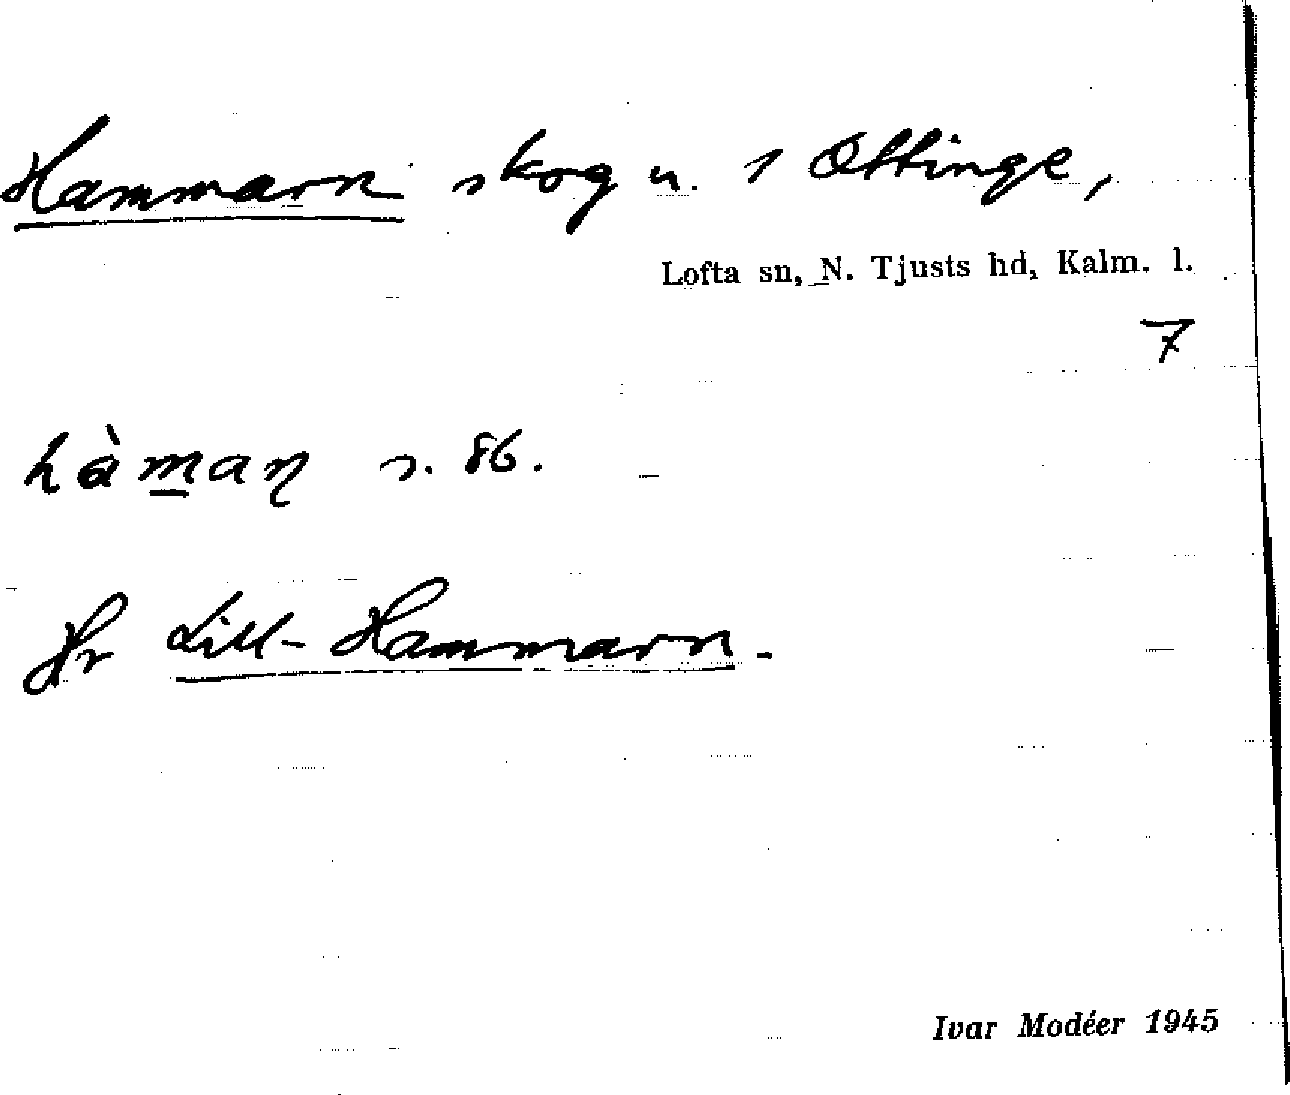 Hammarn skog u. 1 Ottinge,
Lofta sn, N. Tjusts hd, Kalm. l.
7
hàman s. 86.
Hr Lill-Hammarn.
Ivar Modéer 1945